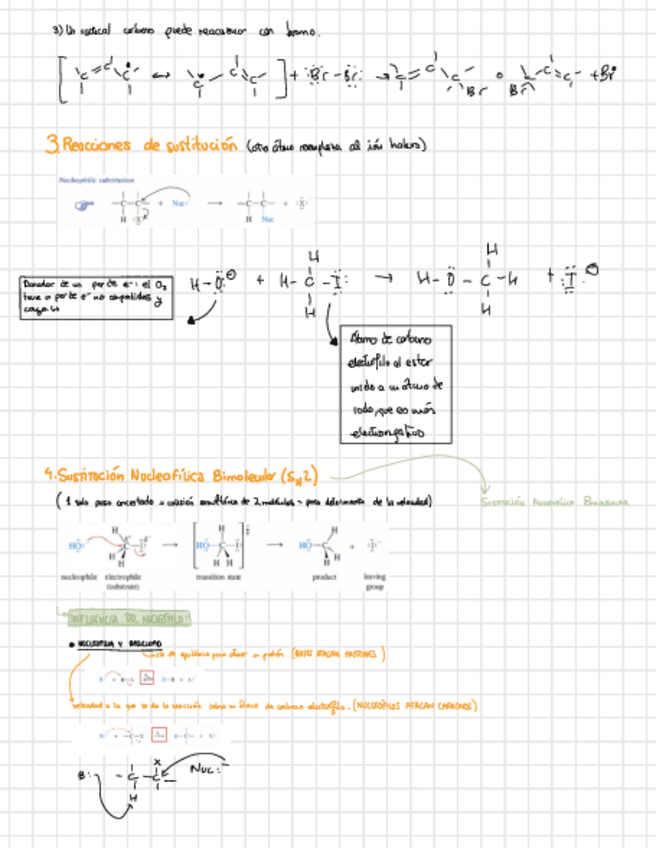 3) Un radical carbono puede reaccionar con bromo.
[ C=C-C ↔ C-C=C ] + :Br-Br: → C=C-C-Br o Br-C-C=C- + Br
3. Reacciones de sustitución (otro átomo reemplaza al ión haluro)
Nucleophilic substitution
-C-C- + Nuc:⁻ → -C-C- + :X:⁻
H :X: H Nuc
Donador de un par de e⁻: el O₂
tiene par de e⁻ no compartidos y
carga
H-O:⊖ + H-C-I: → H-O-C-H + :I:⊖
H H
H H
Átomo de carbono
electrófilo al estar
unido a un átomo de
iodo, que es más
electronegativo
4. Sustitución Nucleofílica Bimolecular (SN2)
(1 solo paso concertado = colisión de 2 moléculas = paso determinante de la velocidad)
SUSTITUCIÓN NUCLEOFÍLICA BIMOLECULAR
HO:⁻ H-C-I: → [HO---C---I:]‡ → HO-C-H + :I:⁻
nucleophile electrophile transition state product leaving
(substrate) group
"INFLUENCIA DEL NUCLEÓFILO"
• NUCLEOFILIA Y BASICIDAD
cte de equilibrio para atraer un protón (BASES ATACAN PROTONES)
velocidad a la que se da la reacción sobre un átomo de carbono electrófilo. (NUCLEÓFILOS ATACAN CARBONOS)
X Nuc:⁻
B: -C-C-
H